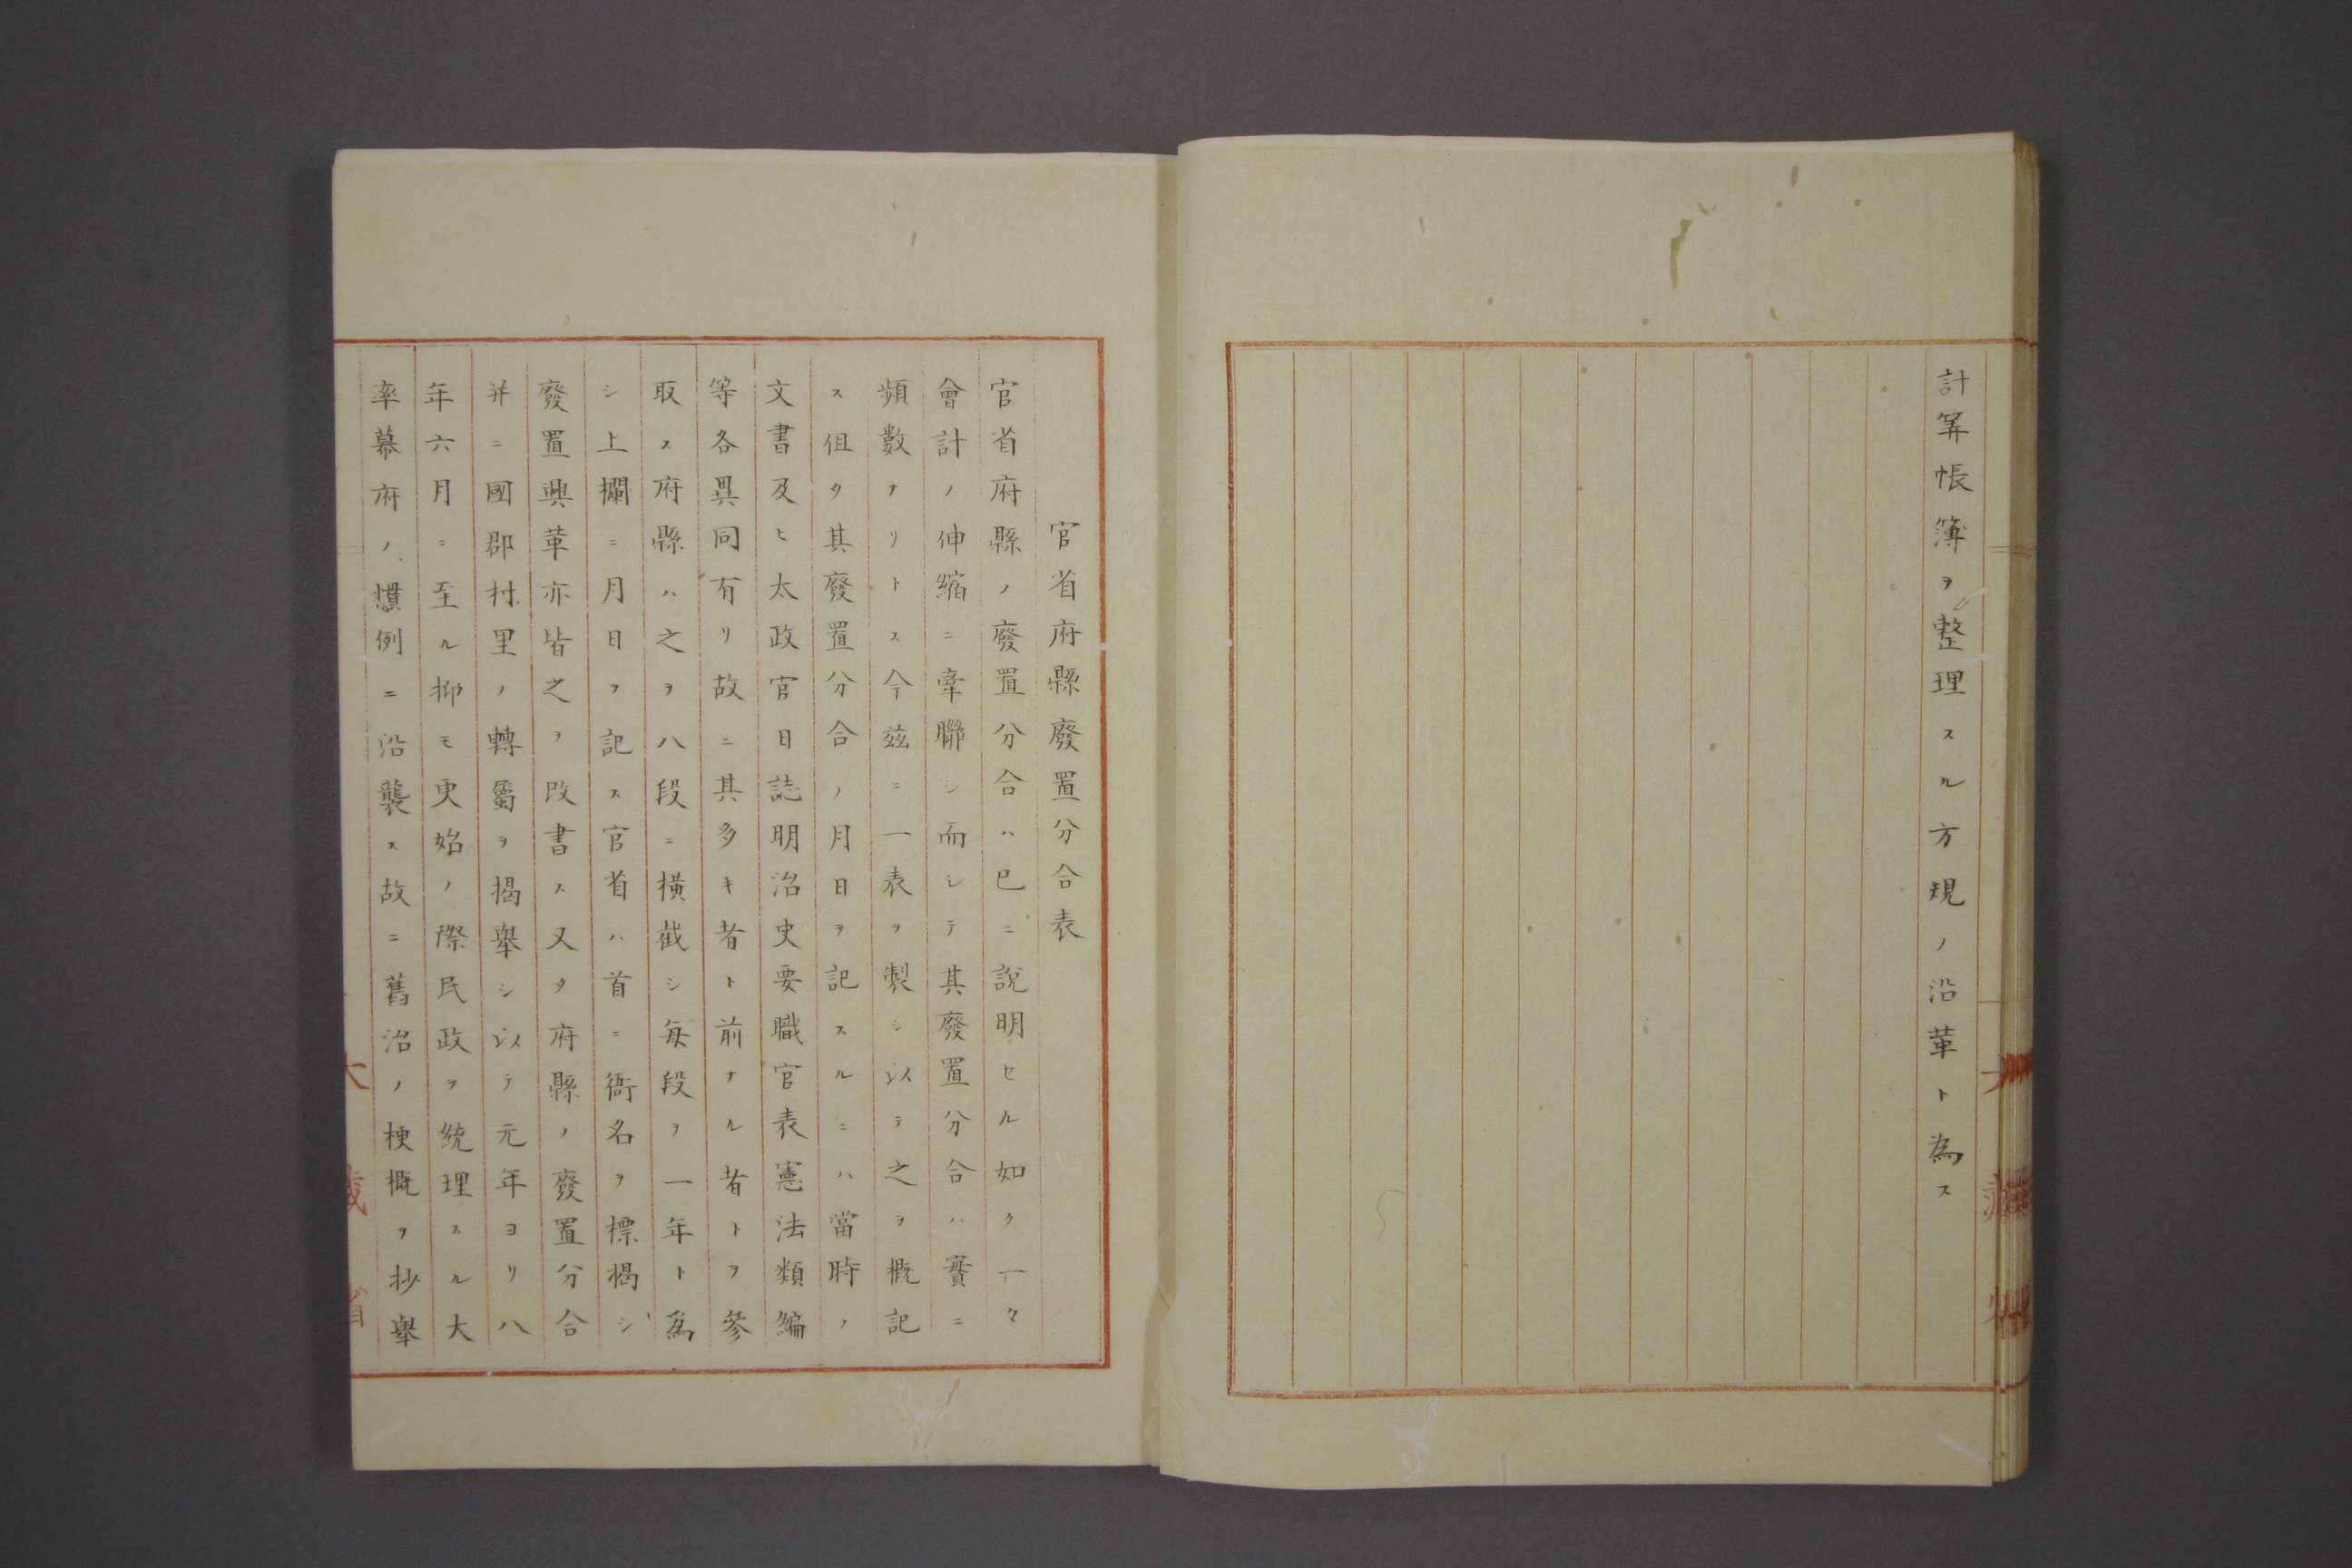 計筭帳簿ヲ整理スル方規ノ沿革ト為ス
官省府縣廢置分合表
官省府縣ノ廢置分合ハ已ニ說明セル如ク一々
會計ノ伸縮ニ牽聯シ而シテ其廢置分合ハ實ニ
頻數ナリトス今茲ニ一表ヲ製シ以テ之ヲ概記
ス但タ其廢置分合ノ月日ヲ記スルニハ當時ノ
文書及ヒ太政官日誌明治史要職官表憲法類編
等各異同有リ故ニ其多キ者ト前ナル者トヲ參
取ス府縣ハ之ヲ八段ニ橫截シ每段ヲ一年ト為
シ上欄ニ月日ヲ記ス官省ハ首ニ衙名ヲ標揭シ
廢置興革亦皆之ヲ改書ス又タ府縣ノ廢置分合
并ニ國郡村里ノ轉屬ヲ揭舉シ以テ元年ヨリ八
年六月ニ至ル抑モ更始ノ際民政ヲ統理スル大
率幕府ノ慣例ニ沿襲ス故ニ舊治ノ梗概ヲ抄舉
大藏省